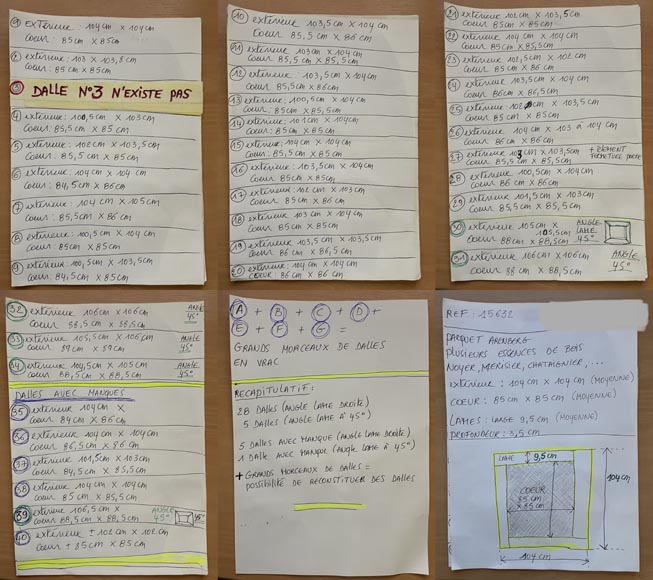 ① extérieur: 104 cm x 104 cm
Coeur: 85 cm x 85 cm
② extérieur: 103 x 103,8 cm
Coeur: 85 cm x 85 cm
③ DALLE N°3 N'EXISTE PAS
④ extérieur: 100,5 cm x 103 cm
Coeur: 85,5 cm x 85 cm
⑤ extérieur: 102 cm x 103,5 cm
Coeur: 85,5 cm x 85 cm
⑥ extérieur: 104 cm x 104 cm
Coeur: 84,5 cm x 86 cm
⑦ extérieur: 104 cm x 105 cm
Coeur: 85,5 cm x 86 cm
⑧ extérieur: 100,5 cm x 104 cm
Coeur: 85 cm x 85 cm
⑨ extérieur: 100,5 cm x 103,5 cm
Coeur: 84,5 cm x 85 cm
⑩ extérieur: 103,5 cm x 104 cm
Coeur: 85,5 cm x 86 cm
⑪ extérieur: 103 cm x 104 cm
Coeur: 85,5 cm x 85,5 cm
⑫ extérieur: 103,5 cm x 104 cm
Coeur: 85 cm x 85 cm
⑬ extérieur: 100,5 cm x 104 cm
Coeur: 85 cm x 85,5 cm
⑭ extérieur: 101 cm x 104 cm
Coeur: 85 cm x 85 cm
⑮ extérieur: 104 cm x 104 cm
Coeur: 85,5 cm x 85 cm
⑯ extérieur: 103,5 cm x 104 cm
Coeur: 85 cm x 85 cm
⑰ extérieur: 102 cm x 103 cm
Coeur: 85 cm x 86 cm
⑱ extérieur: 103 cm x 104 cm
Coeur: 85 cm x 85 cm
⑲ extérieur: 103,5 cm x 103,5 cm
Coeur: 86 cm x 86 cm
⑳ extérieur: 104 cm x 104 cm
Coeur: 86 cm x 86 cm
㉑ extérieur 102 cm x 103,5 cm
Coeur 85 cm x 85 cm
㉒ extérieur 104 cm x 104 cm
Coeur 85 cm x 85,5 cm
㉓ extérieur 102,5 cm x 102 cm
Coeur 85 cm x 86 cm
㉔ extérieur 103,5 cm x 104 cm
Coeur 86 cm x 86 cm
㉕ extérieur 102 cm x 103,5 cm
Coeur 85 cm x 85 cm
㉖ extérieur 104 cm x 103 à 104 cm
Coeur 86 cm x 86 cm
㉗ extérieur 103 cm x 103,5 cm + ÉLÉMENT
Coeur 85,5 cm x 85,5 cm FERMETURE PORTE
㉘ extérieur 100,5 cm x 104 cm
Coeur 86 cm x 86 cm
㉙ extérieur 101,5 cm x 103 cm
Coeur 85,5 cm x 85,5 cm
㉚ extérieur 105 cm x 105,5 cm ANGLE LAME 45°
Coeur 88 cm x 88,5 cm
㉛ extérieur 106 cm x 106 cm ANGLE
Coeur 88 cm x 88,5 cm 45°
㉜ extérieur 106 cm x 106 cm ANGLE
Coeur 88,5 cm x 88,5 cm 45°
㉝ extérieur 105,5 cm x 106 cm ANGLE
Coeur 89 cm x 89 cm 45°
㉞ extérieur 104,5 cm x 105 cm ANGLE
Coeur 88,5 cm x 88,5 cm 45°
DALLES AVEC MANQUES
㉟ extérieur 104 cm x
Coeur 84 cm x 86 cm
㊱ extérieur 104 cm x 104 cm
Coeur 86,5 cm x 86 cm
㊲ extérieur 101,5 cm x 103 cm
Coeur 84,5 cm x 85,5 cm
㊳ extérieur 104 cm x 104 cm
Coeur 85 cm x 85,5 cm
㊴ extérieur 106,5 cm x ANGLE
Coeur 88,5 cm x 88,5 cm 45° 45°
㊵ extérieur ± 102 cm x 102 cm
Coeur ± 85 cm x 85 cm
A + B + C + D +
E + F + G =
GRANDS MORCEAUX DE DALLES
EN VRAC
RECAPITULATIF:
28 DALLES (ANGLE LAME DROITE)
5 DALLES (ANGLE LAME À 45°)
5 DALLES AVEC MANQUE (ANGLE LAME DROITE)
1 DALLE AVEC MANQUE (ANGLE LAME À 45°)
+ GRANDS MORCEAUX DE DALLES =
POSSIBILITÉ DE RECONSTITUER DES DALLES
REF: 15632
PARQUET ARENBERG
PLUSIEURS ESSENCES DE BOIS
NOYER, MERISIER, CHATAIGNIER, ...
EXTÉRIEUR: 104 cm x 104 cm (MOYENNE)
COEUR: 85 cm x 85 cm (MOYENNE)
LAMES: LARGE 9,5 cm (MOYENNE)
PROFONDEUR: 3,5 cm
LAME 9,5 cm
COEUR
85 cm
x 85 cm
104 cm
104 cm